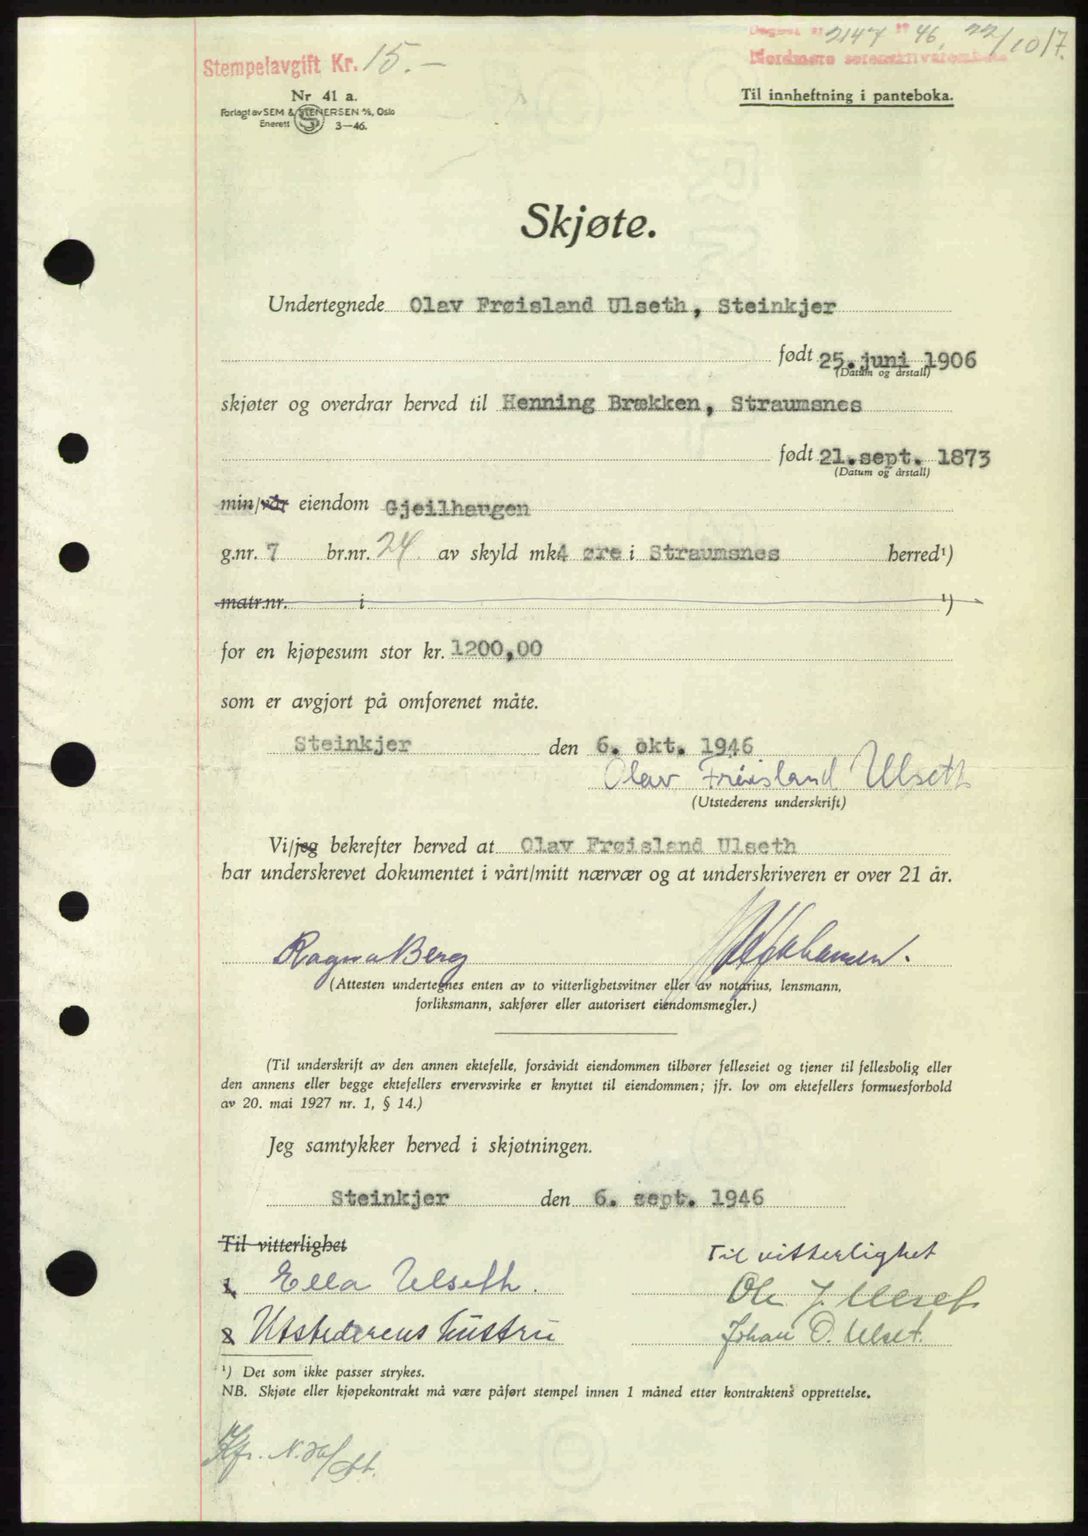 Dagbok nr 2147 1946, 22/10 17.
Stempelavgift Kr. 15.-
Nordmøre sorenskriverembede
Nr 41 a.
Forlagt av SEM & STENERSEN A/S, Oslo
Enerett 3—46.
Til innheftning i panteboka.
Skjøte.
Undertegnede Olav Frøisland Ulseth, Steinkjer
født 25. juni 1906
(Datum og årstall)
skjøter og overdrar herved til Henning Brækken, Straumsnes
født 21. sept. 1873
(Datum og årstall)
min/vår eiendom Gjeilhaugen
g.nr. 7 br.nr. 24. av skyld mk 4 øre i Straumsnes herred¹)
matr.nr. i ¹)
for en kjøpesum stor kr. 1200,00
som er avgjort på omforenet måte.
Steinkjer den 6. okt. 1946
Olav Frøisland Ulseth
(Utstederens underskrift)
Vi/jeg bekrefter herved at Olav Frøisland Ulseth
har underskrevet dokumentet i vårt/mitt nærvær og at underskriveren er over 21 år.
Ragna Berg
(Attesten undertegnes enten av to vitterlighetsvitner eller av notarius, lensmann,
forliksmann, sakfører eller autorisert eiendomsmegler.)
(Til underskrift av den annen ektefelle, forsåvidt eiendommen tilhører felleseiet og tjener til fellesbolig eller
den annens eller begge ektefellers ervervsvirke er knyttet til eiendommen; jfr. lov om ektefellers formuesforhold
av 20. mai 1927 nr. 1, § 14.)
Jeg samtykker herved i skjøtningen.
Steinkjer den 6. sept. 1946
Til vitterlighet
Til vitterlighet
1. Ella Ulseth.
Ole J. Ulset
2 Utstederens hustru
Johan O. Ulset.
¹) Det som ikke passer strykes.
NB. Skjøte eller kjøpekontrakt må være påført stempel innen 1 måned etter kontraktens opprettelse.